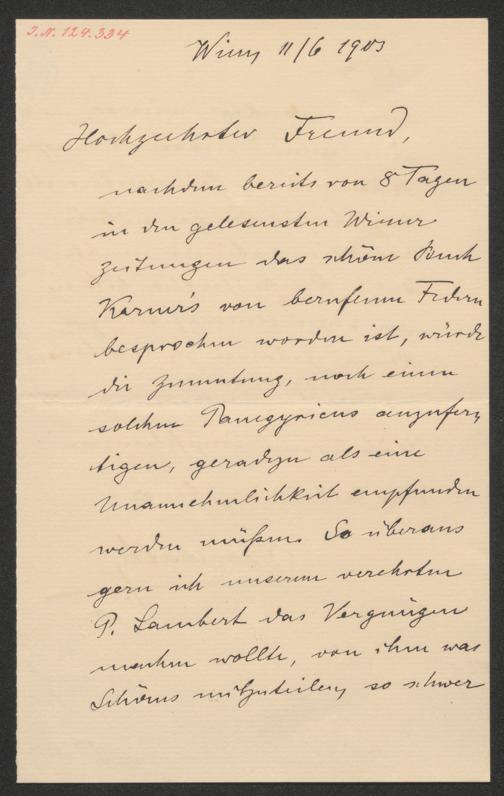 J.N. 124.334
Wien, 11/6 1903
Hochgeehrter Freund,
nachdem bereits von 8 Tagen
in den gelesensten Wiener
Zeitungen das schöne Buch
Karner's von berufenen Federn
besprochen worden ist, würde
die Zumutung, noch einen
solchen Panegyricus anzufer,
tigen, geradezu als eine
Unannehmlichkeit empfunden
werden müßen. So überaus
gern ich unserem verehrten
P. Lambert das Vergnügen
machen wollte, von ihm was
Schönes mitzuteilen, so schwer